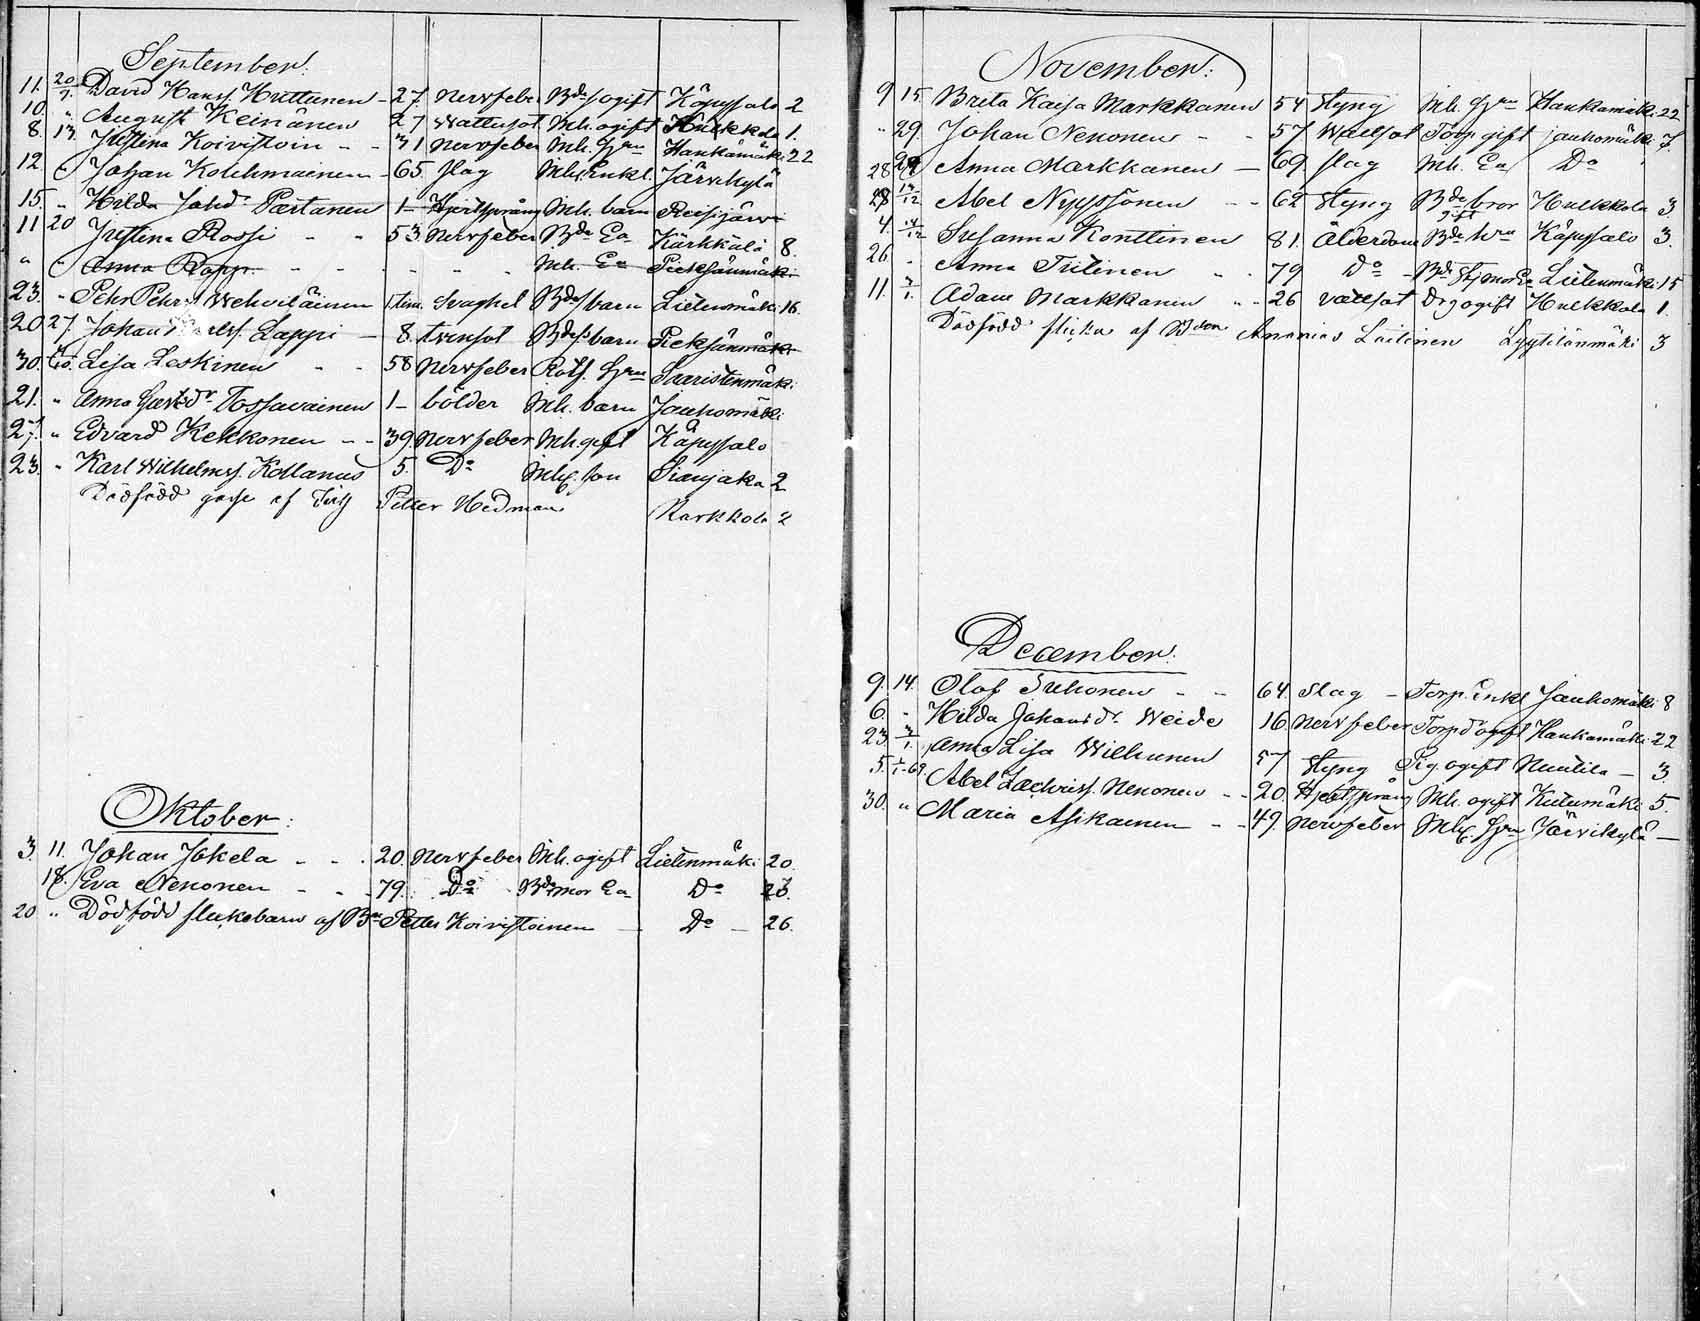 September.
11. 20/9. David Hanss. Huttunen - 27. Nervfeber Bdes ogift Käpysalo 2
10. " August Keinänen 27 Wattusot Mh. ogift Hulkkola 1.
8. 13. Justina Koivistoin - - 31 Nervfeber Mh. hru Haukamäki 22
12 " Johan Kolehmainen - 65. slag Mh. Enkl. Järvikylä
15. " Hilda Johsdr Partanen 1 - Hjertsprång Mh. barn Reisijärvi
11 20 Justina Rossi - - 53. Nervfeber Bde Ea Kärkkälä 8.
" " Anna Ropp - - - - Mh. Ea Pieksänmäki
23. " Pehr Pehrs. Wehviläinen 1 tim. Svaghet Bdes barn Lietenmäki 16.
20 27. Johan Lappi - 8. tvinsot Bdes barn Pieksänmäki
30. Lisa Laskinen - - 58 Nervfeber Rotf. hru Saaristenmäki
21. " Anna Tossavainen 1 - bölder Mh. barn Jauhomäki
27. " Edvard Kekkonen - - 39. Nervfeber Mh. gift Käpysalo
23. " Karl Wilhelmss. Kollanus 5. Do Mh. son Sianjaka 2
Dödfödd gosse af Petter Hedman Karkkola 2
Oktober.
3. 11. Johan Jokela - - - 20. Nervfeber Mh. ogift Lietenmäki 20.
18. Eva Nenonen - - - 79. Do Bdes mor Ea Do 23.
20 " Dödfödd flickebarn af Bn Petter Koivistoinen - Do - 26.
November.
9 15 Brita Kaisa Markkanen 54 Styng Mh. hru Haukamäki 22
" 29. Johan Nenonen - - 57 Wattsot Torp. gift Jauhomäki 7.
28 29 Anna Markkanen - 69. slag Mh. Ea Do
28 /12 Abel Nyyssönen - - 62 Styng Bde bror gift Hulkkola 3.
4. /12 Susanna Konttinen 81. Ålderdom Bde hru Käpysalo 3.
26 " Anna Tiitinen - - 79 Do - Bde Styfmor Ea Lietenmäki 15
11. /1. Adam Markkanen - - 26 Vattsot Drg ogift Hulkkola 1.
Dödfödd flicka af Bden Ananias Laitinen Lyytilänmäki 3
December.
9. 14. Olof Suhonen - - 64. Slag - Torp. Enkl Jauhomäki 8
6. " Hilda Johansdr. Weide 16. Nervfeber Torp dr ogift Haukamäki 22
23. /1. Anna Lisa Wilhunen 57 Styng Pig. ogift Nuutila - 3.
5. /1-69. Abel Zachriss. Nenonen - - 20. Hjertsprång Mh. ogift Kutumäki 5.
30. " Maria Asikainen - - 49. Nervfeber Mh. hru Järvikylä -